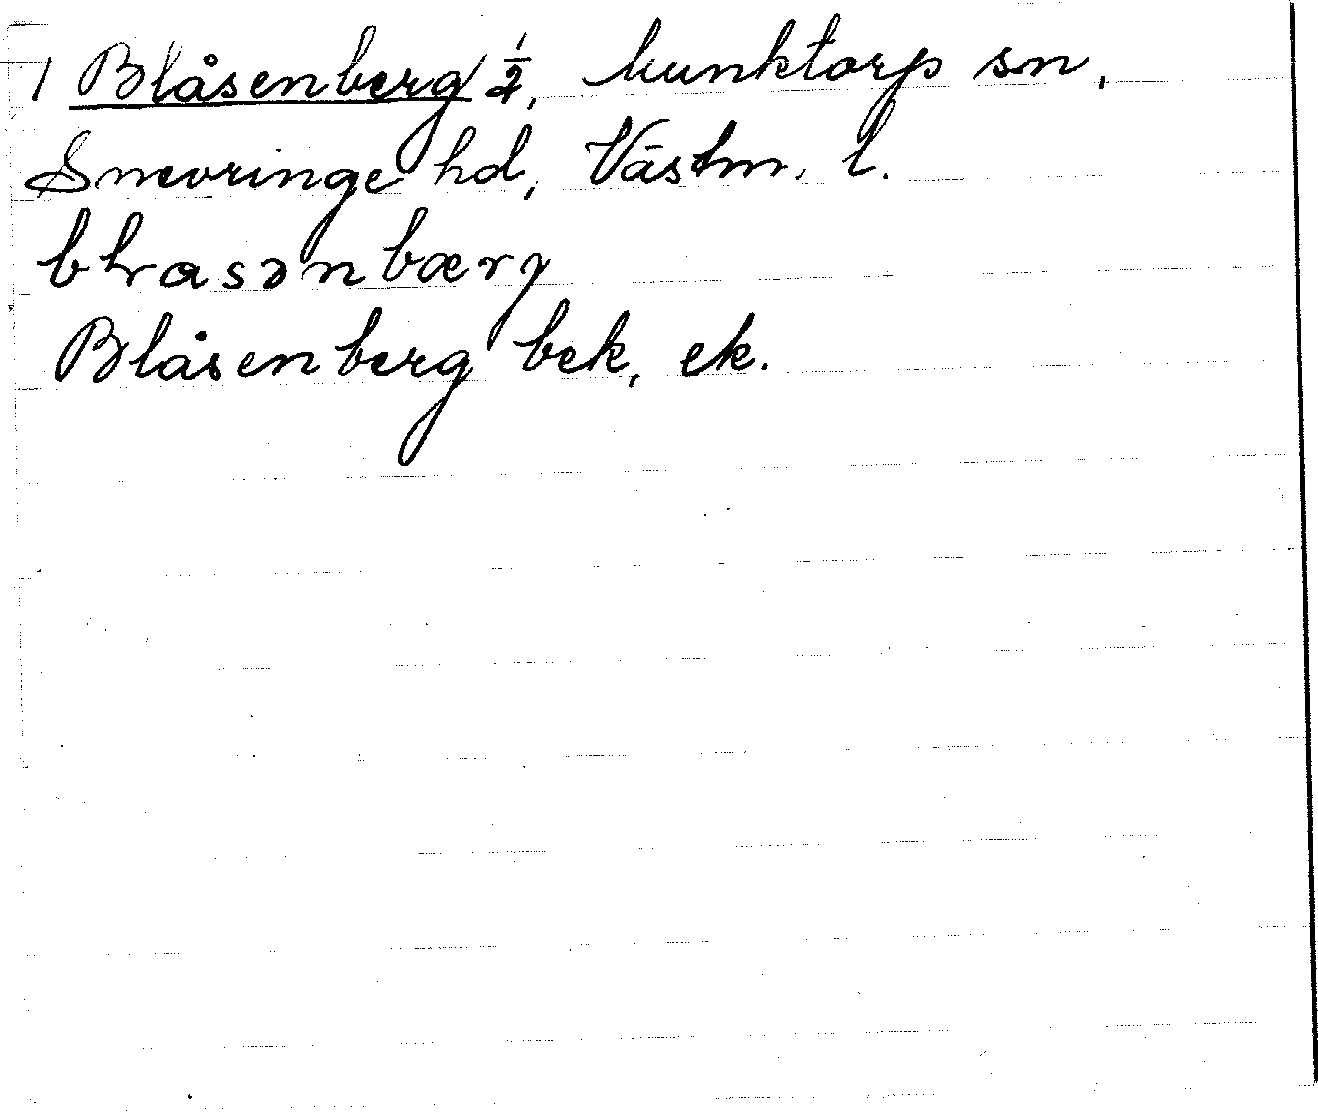 1 Blåsenberg ½, Munktorp sn,
Snevringe hd, Västm. l.
blrasənbærg
Blåsenberg bek, ek.